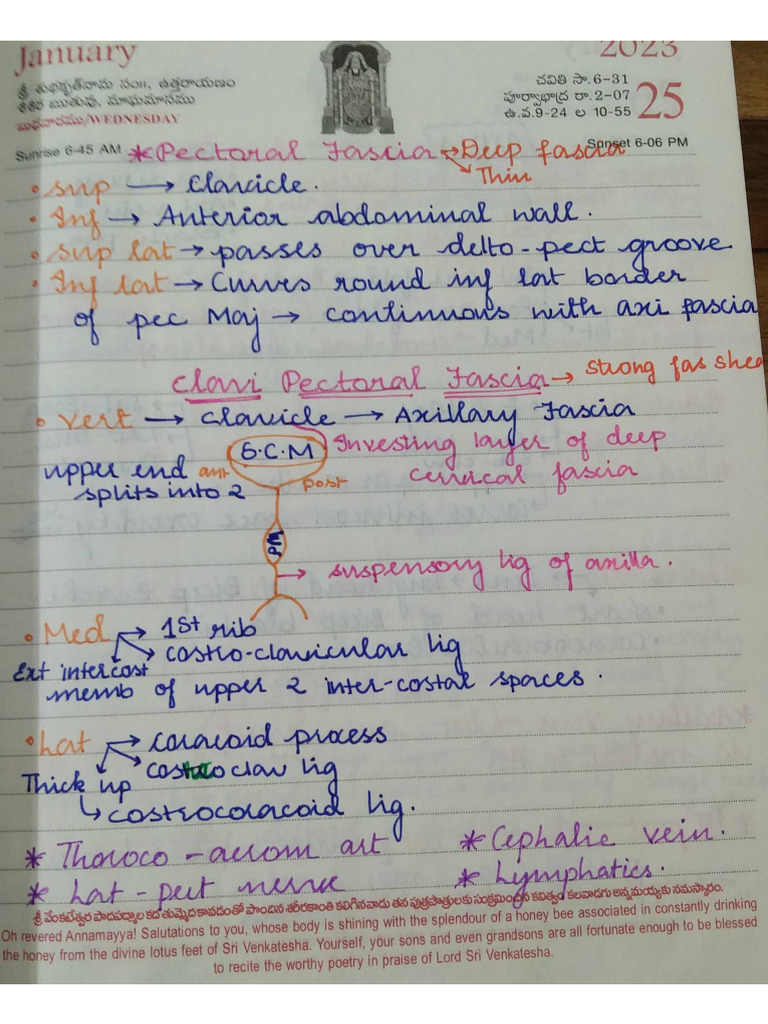 January 2023
శ్రీ శుభకృత్‌నామ సం॥, ఉత్తరాయణం
శిశిర ఋతువు, మాఘమాసము
బుధవారము/WEDNESDAY
చవితి సా.6-31
పూర్వాభాద్ర రా.2-07
ఉ.వ.9-24 ల 10-55
25
Sunrise 6-45 AM
Sunset 6-06 PM
* Pectoral Fascia → Deep fascia
→ Thin
• Sup → Clavicle.
• Inf → Anterior abdominal wall.
• Sup lat → passes over delto-pect groove
• Inf lat → Curves round inf lat border
of pec Maj → continuous with axi fascia
Clavi Pectoral Fascia → strong fas shea
• Vert → Clavicle → Axillary Fascia
S.C.M
Investing layer of deep
cervical fascia
upper end
splits into 2
ant
post
PM
→ suspensory lig of axilla.
• Med → 1st rib
→ costro-clavicular lig
Ext intercost
memb of upper 2 inter-costal spaces.
• Lat → coracoid process
→ costo clav lig
Thick up
↳ costrocoracoid lig.
* Thoraco-acrom art
* Cephalic vein.
* Lat-pect nerve
* Lymphatics.
శ్రీ వేంకటేశ్వర పాదపద్మాల కడ తుమ్మెదకావడంతో పొందిన శరీరకాంతి కలిగినవాడు తన పుత్రపౌత్రులకు సంక్రమించిన కవిత్వం కలవాడగు అన్నమయ్యకు నమస్కారం.
Oh revered Annamayya! Salutations to you, whose body is shining with the splendour of a honey bee associated in constantly drinking
the honey from the divine lotus feet of Sri Venkatesha. Yourself, your sons and even grandsons are all fortunate enough to be blessed
to recite the worthy poetry in praise of Lord Sri Venkatesha.